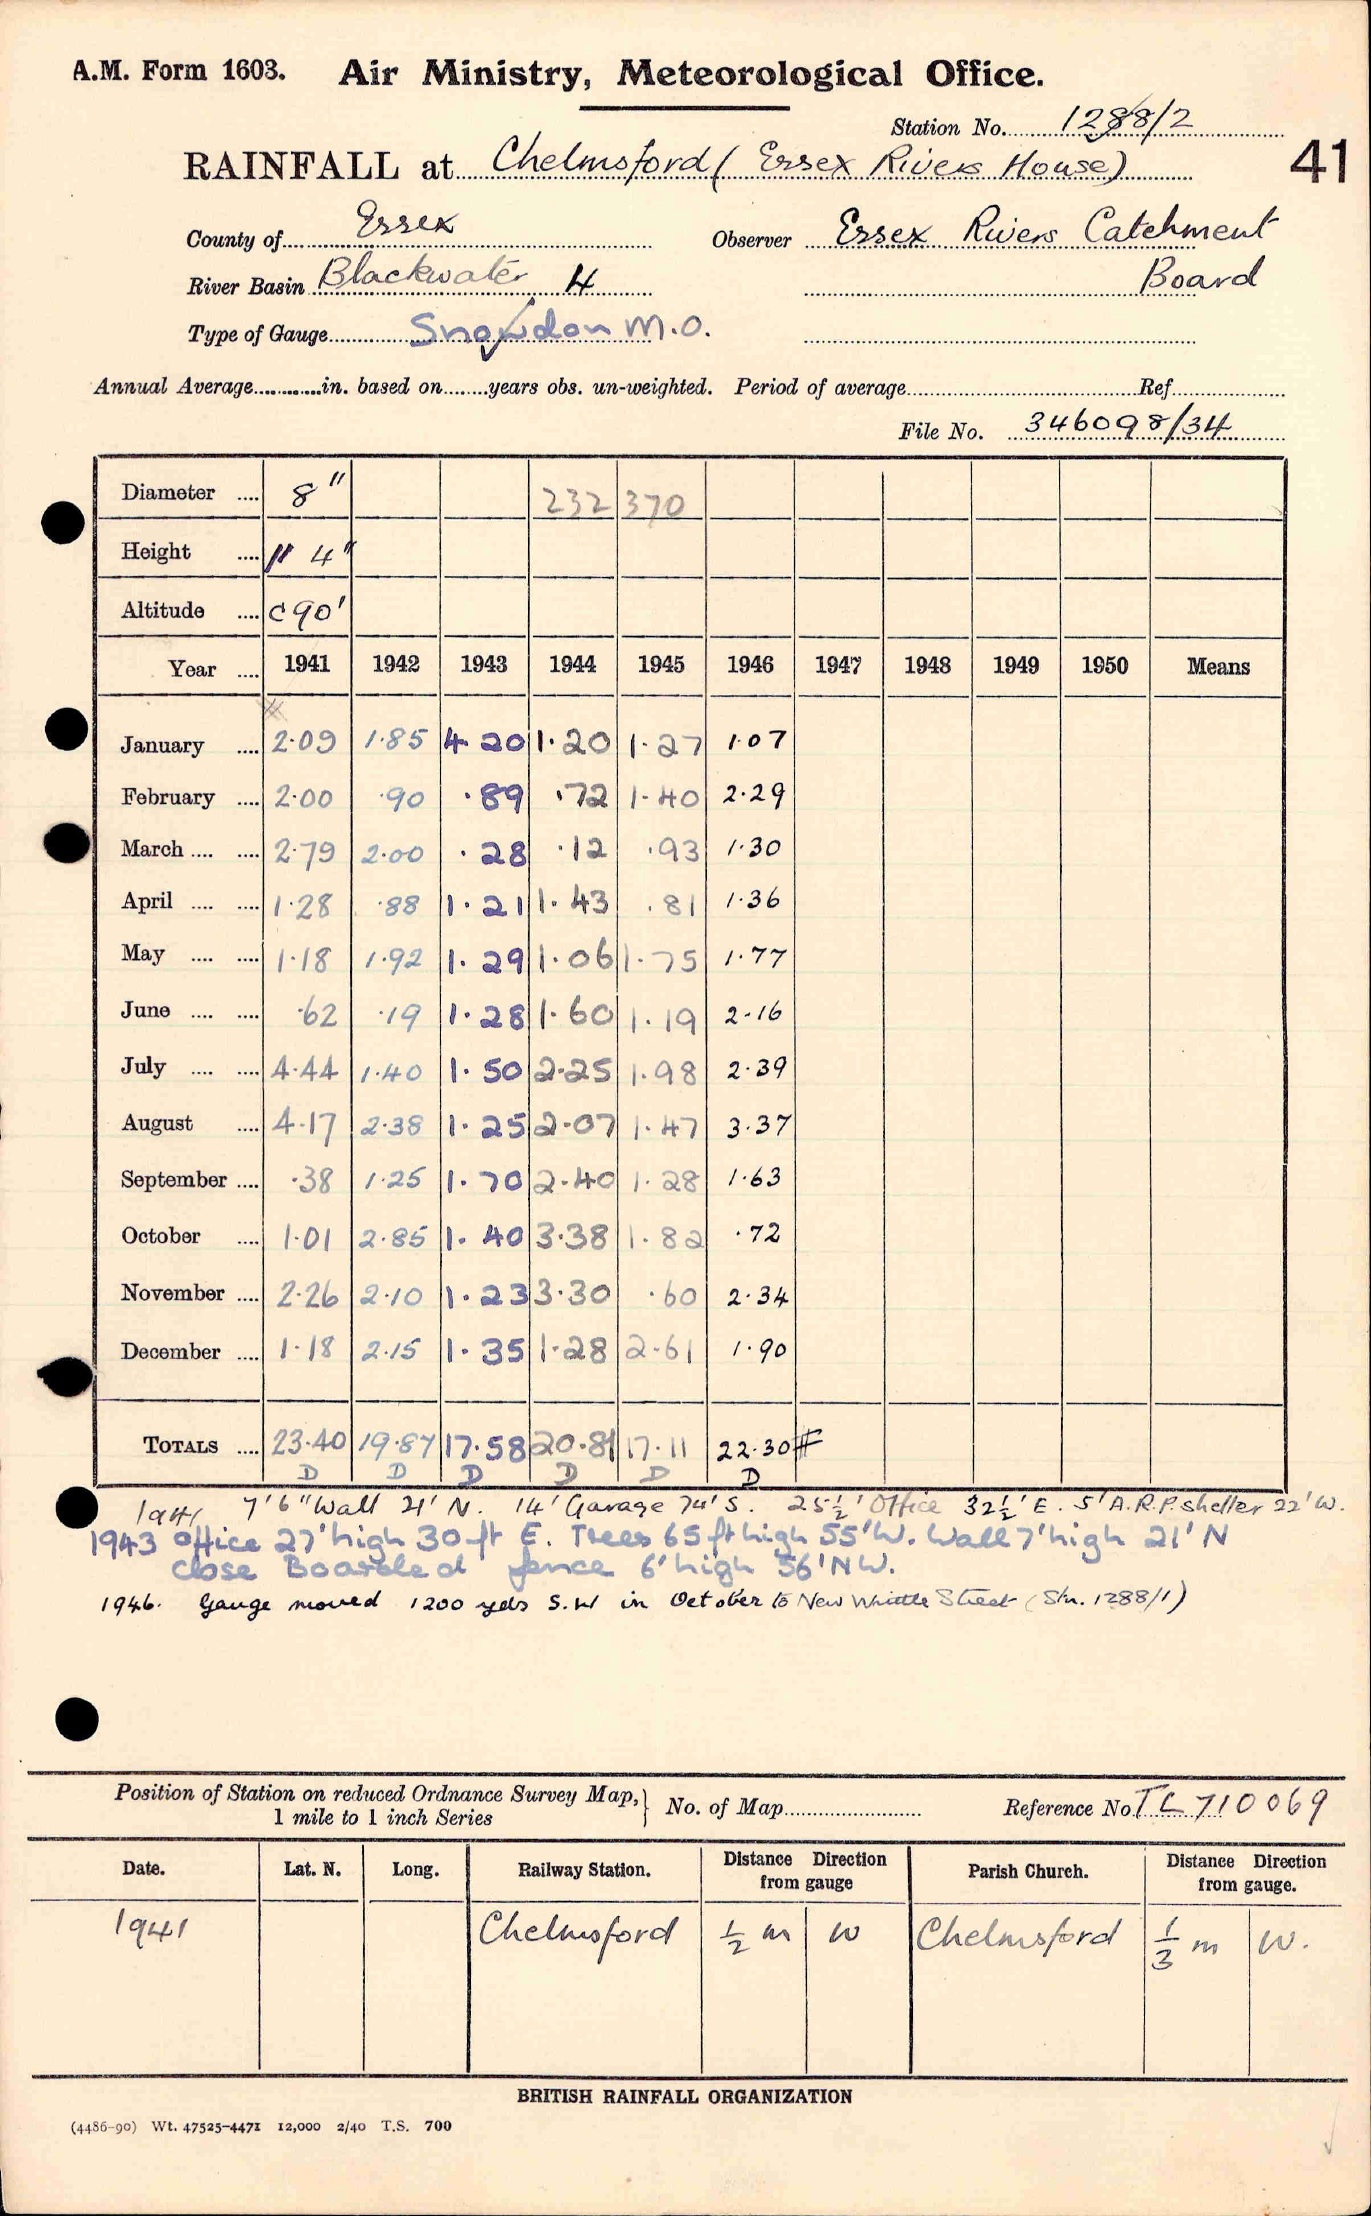 A.M. Form 1603. Air Ministry, Meteorological Office.
Station No. 1288/2
RAINFALL at Chelmsford (Essex Rivers House)
41
County of Essex Observer Essex Rivers Catchment
River Basin Blackwater 4 Board
Type of Gauge Snowdon M.O.
Annual Average............in. based on........years obs. un-weighted. Period of average........Ref........
File No. 346098/34
Diameter .... 8" 232 370
Height .... 4"
Altitude .... c 90'
Year .... 1941 1942 1943 1944 1945 1946 1947 1948 1949 1950 Means
January .... 2.09 1.85 4.20 1.20 1.27 1.07
February .... 2.00 .90 .89 .72 1.40 2.29
March .... .... 2.79 2.00 .28 .12 .93 1.30
April .... .... 1.28 .88 1.21 1.43 .81 1.36
May .... .... 1.18 1.92 1.29 1.06 1.75 1.77
June .... .... .62 .19 1.28 1.60 1.19 2.16
July .... .... 4.44 1.40 1.50 2.25 1.98 2.39
August .... 4.17 2.38 1.25 2.07 1.47 3.37
September .... .38 1.25 1.70 2.40 1.28 1.63
October .... 1.01 2.85 1.40 3.38 1.82 .72
November .... 2.26 2.10 1.23 3.30 .60 2.34
December .... 1.18 2.15 1.35 1.28 2.61 1.90
TOTALS .... 23.40 19.87 17.58 20.81 17.11 22.30 #
D D D D D D
1941 7'6" Wall 21' N. 14' Garage 74' S. 25½' Office 32½' E. 5' A.R.P. shelter 22' W.
1943 office 27' high 30 ft E. Trees 65 ft high 55' W. Wall 7' high 21' N
close Boarded fence 6' high 56' NW.
1946. Gauge moved 1200 yds S.W in October to New Whittle Street (Stn. 1288/1)
Position of Station on reduced Ordnance Survey Map, 1 mile to 1 inch Series } No. of Map........ Reference No. TL 710069
Date. Lat. N. Long. Railway Station. Distance Direction from gauge Parish Church. Distance Direction from gauge.
1941 Chelmsford ½ m W Chelmsford ⅓ m W.
BRITISH RAINFALL ORGANIZATION
(4486-90) Wt. 47525-4471 12,000 2/40 T.S. 700